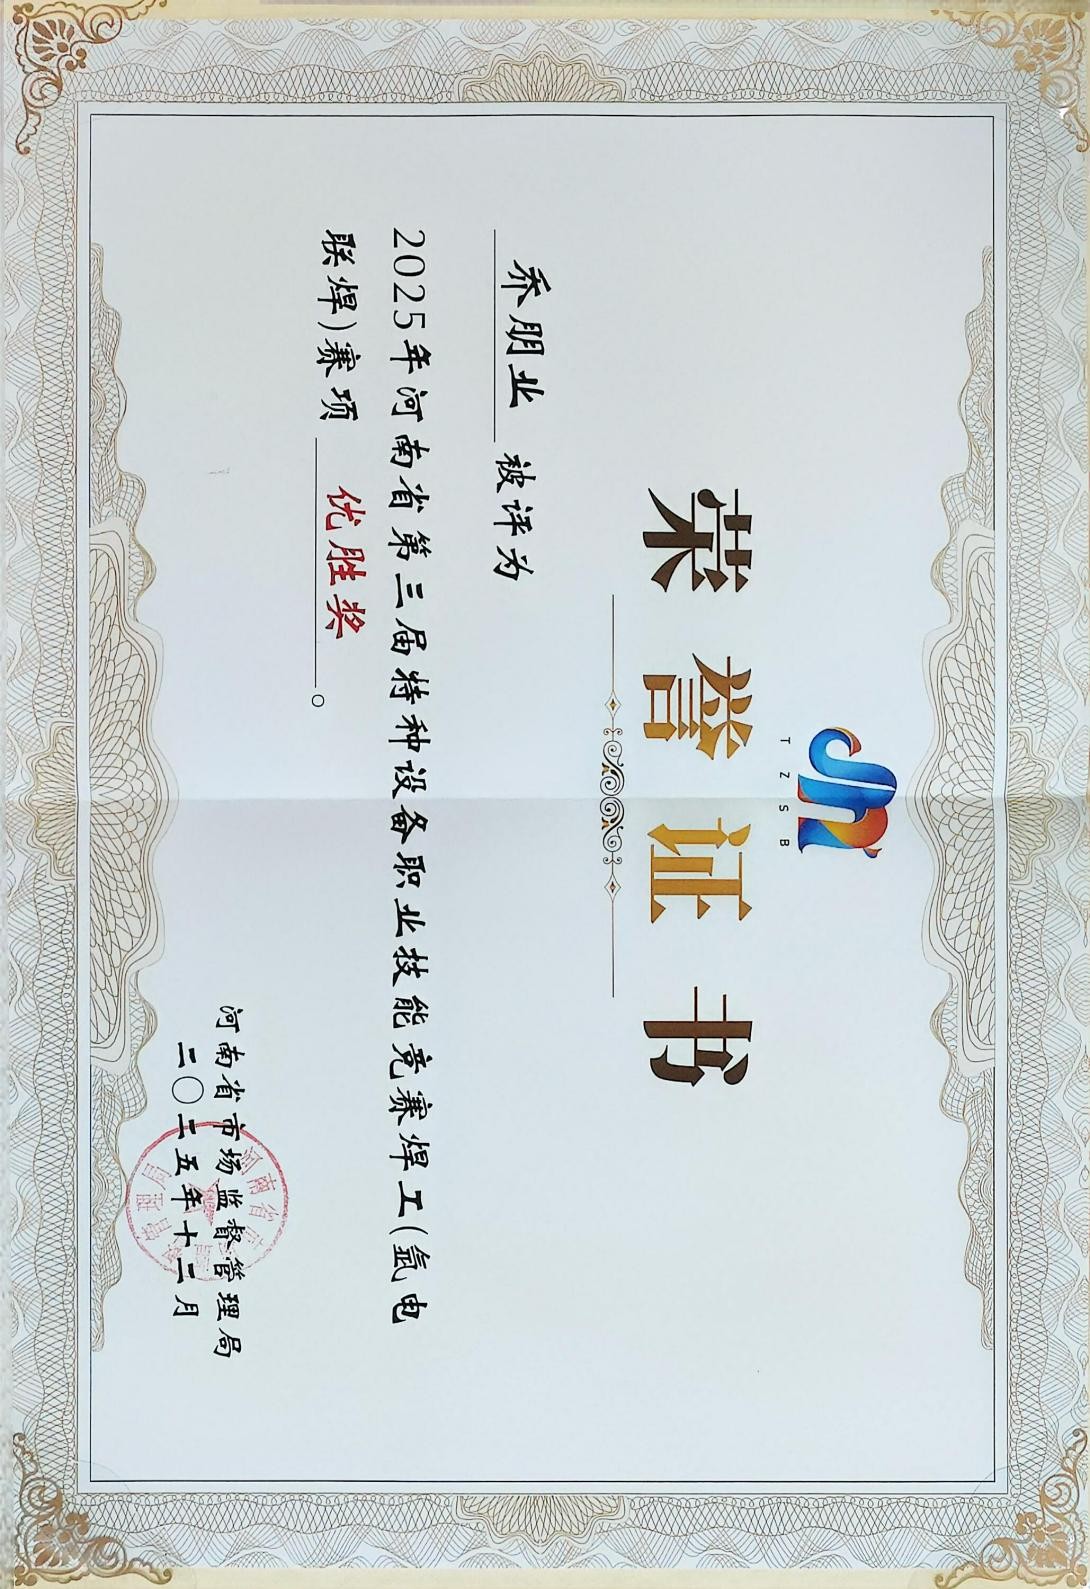 TZSB
荣誉证书
乔朋业 被评为
2025年河南省第三届特种设备职业技能竞赛焊工(氩电
联焊)赛项 优胜奖。
河南省市场监督管理局
二〇二五年十二月